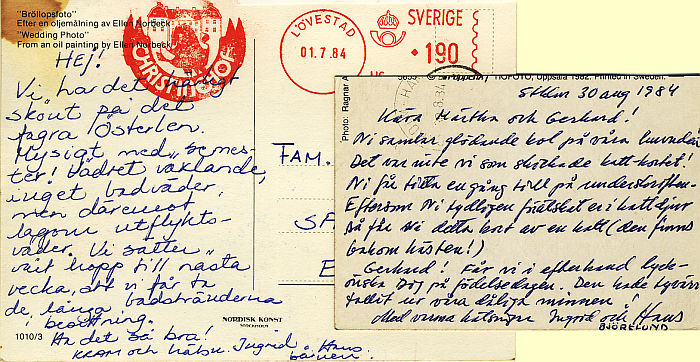 "Bröllopsfoto"
Efter en oljemålning av Ellen Norbeck
"Wedding Photo"
From an oil painting by Ellen Norbeck
CHRISTINEHOF
LÖVESTAD
01.7.84
SVERIGE
190
Hej!
Vi har det härligt
skönt på det
fagra Österlen.
Mysigt med "semes-
ter! Vädret växlande,
inget badväder,
men däremot
lagom utflykts-
väder. Vi sätter
vårt hopp till nästa
vecka, att vi får ta
de långa badstränderna
i besittning.
Ha det så bra!
Kram och hälsn. Ingrid, Hans
barnen
1010/3
NORDISK KONST
STOCKHOLM
FAM.
Photo: Ragnar A
Uppsala 1982. Printed in Sweden.
Sthlm 30 aug 1984
Kära Märtha och Gerhard!
Vi samlar glödande kol på våra huvuden
Det var inte vi som skickade katt-kortet!
Ni får titta en gång till på underskriften.
Eftersom Ni tydligen är i kattdjur
så får Ni detta kort av en katt (den finns
bakom hästen!)
Gerhard! Får vi i efterhand lyck-
önska Dig på födelsedagen. Den hade tyvärr
fallit ur våra dåliga minnen!
Med varma hälsningar Ingrid och Hans
BJÖRELUND